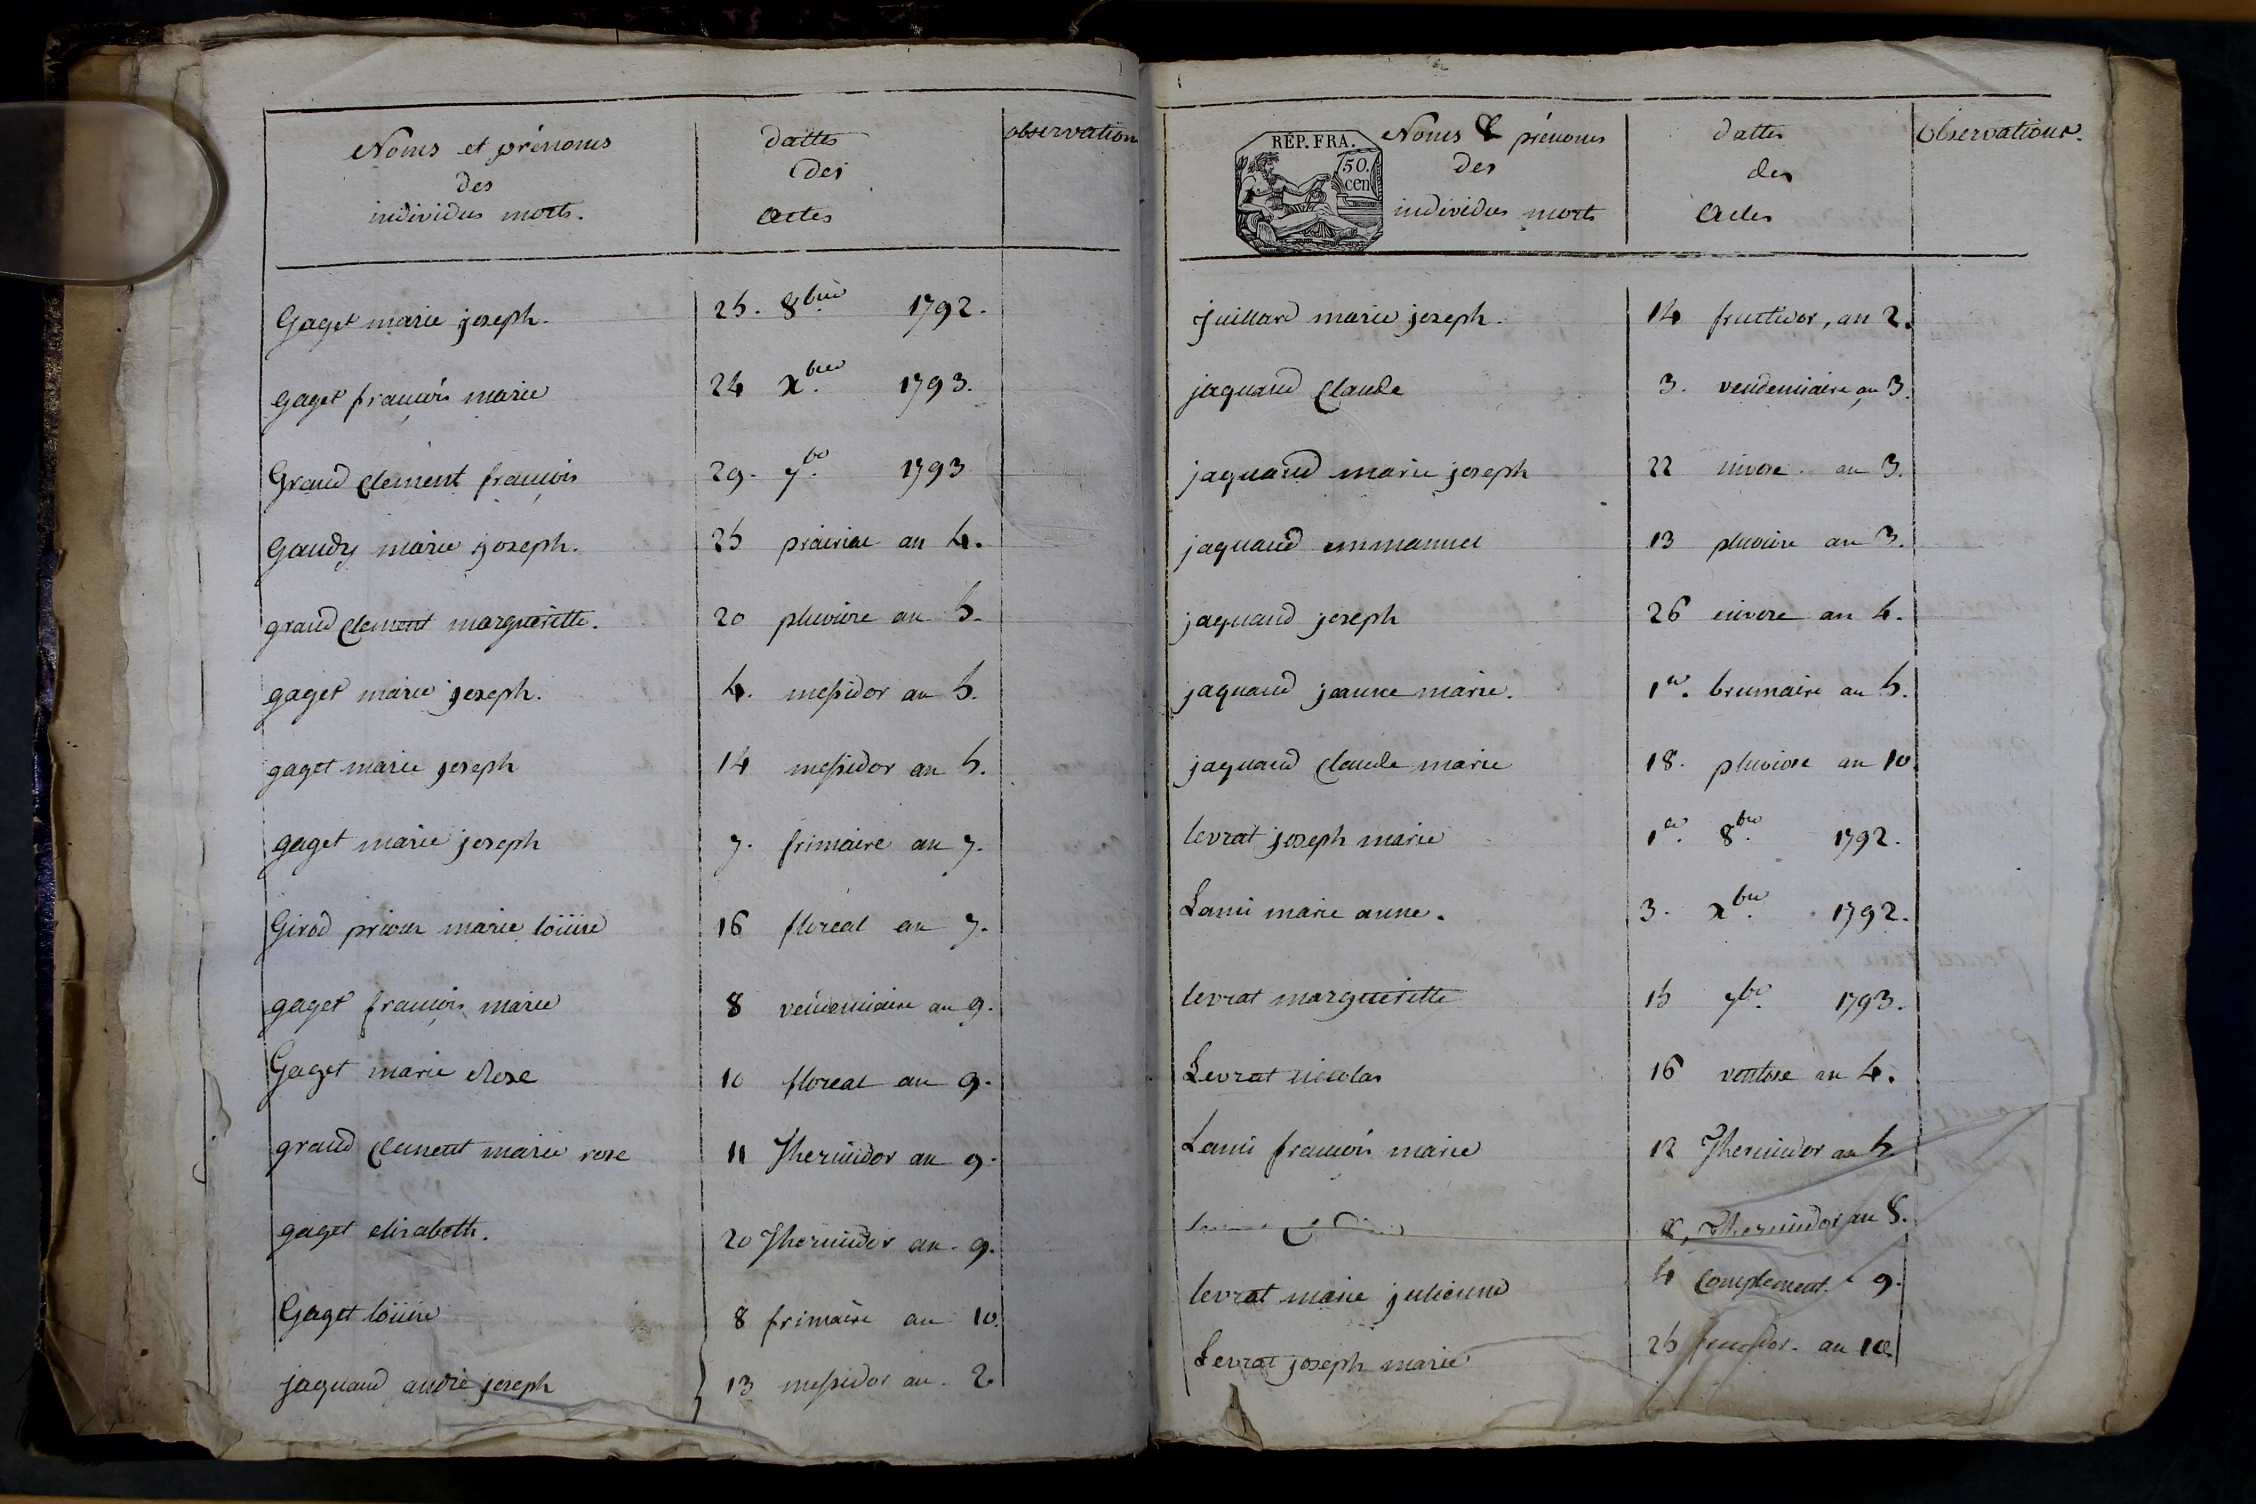 Noms et prénoms
des
individus morts.
dattes
des
actes
observation
Gaget marie joseph. 25. 8bre 1792.
gaget francois marie 24 xbre 1793.
Grand clement francois 29. 7bre 1793
Gaudy marie joseph. 25 prairial an 4.
grand clement margueritte. 20 pluviose an 5.
gaget marie joseph. 4. messidor an 5.
gaget marie joseph 14 messidor an 5.
gaget marie joseph 7. frimaire an 7.
Girod prieur marie loüise 16 floreal an 7.
gaget francois marie 8 vendemiaire an 9.
Gaget marie Rose 10 floreal an 9.
grand clement marie rose 11 Thermidor an 9.
gaget elisabeth. 20 Thermidor an 9.
Gaget loüise 8 frimaire an 10.
jaquand andré joseph 13 messidor an 2
RÉP. FRA.
50.
cen
Noms & prénoms
des
individus morts
dattes
des
Actes
Observations.
Juilland marie joseph. 14 fructidor, an 2.
jaquand Claude 3. vendemiaire an 3.
jaquand marie joseph 22 nivose an 3.
jaquand emmanuel 13 pluviose an 3.
jaquand joseph 26 nivose an 4.
jaquand jeanne marie. 1er. brumaire an 5.
jaquand Claude marie 18. pluviose an 10
levrat joseph marie 1er. 8bre 1792.
Lami marie anne. 3. xbre 1792.
levrat margueritte 15 7bre 1793.
Levrat nicolas 16 ventose an 4.
Lami francois marie 12 Thermidor an 5
Thermidor an 8.
levrat marie julienne 4 Complement. 9.
Levrat joseph marie 25 fructidor. an 10